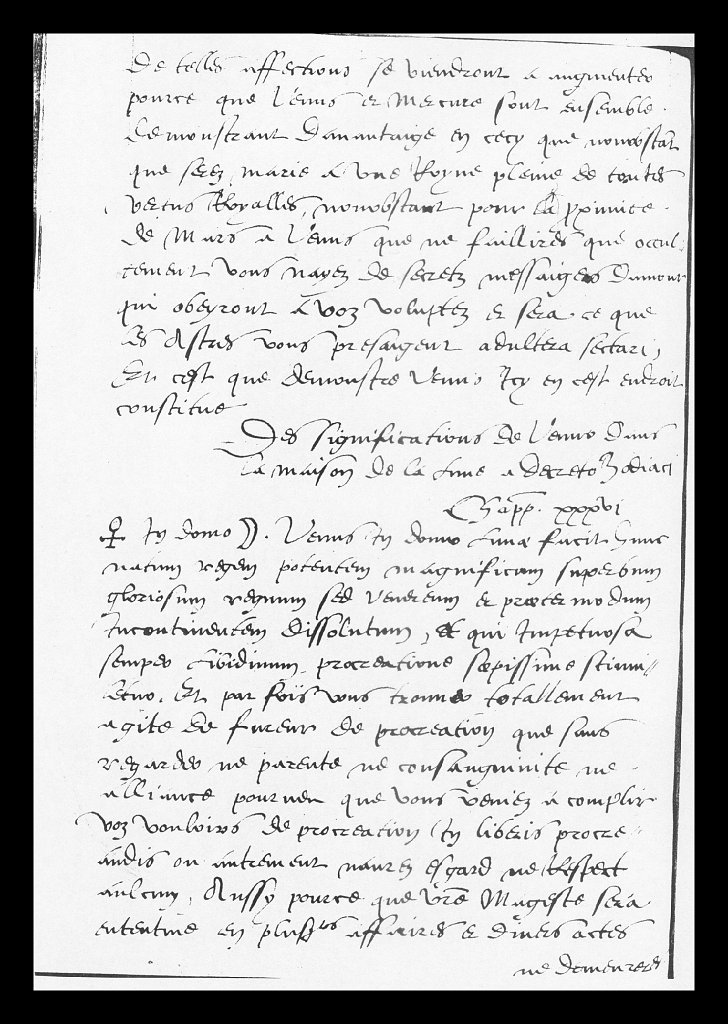 De telles affections se viendront a augmenter
pource que Venus et Mercure sont ensemble.
Demonstrant Dauantaige en cecy que nonobstāt
que serez marie a vne Royne pleine de toutes
vertus Royalles, nonobstant pour la pximite
de Mars a Venus que ne faillires que occul-
tement vous nayez de secretz messaigers Damour
qui obeyront a voz voluptez et sera ce que
les Astres vous presaigent adultera sectari,
Et cest que demonstre Venus Icy en cest endroit
constitue
Des significations de Venus Dans
la maison de la Lune a decreto Zodiaci
Chapp. xxxvi
♀ In domo ☽. Venus In domo Lunæ facit hunc
natum regem potentem magnificum superbum
gloriosum regnum sed Venereum et præter modum
Incontinentem dissolutum, et qui Impetuosa
semper libidinum procreatione sæpissime stimu-
letur. Et par fois vous trouuer totallement
agite de fureur de procreation que sans
regarder ne parente ne consanguinite ne
alliance pourueu que vous veniez a complir
voz vouloirs de procreation In liberis procre-
andis ou autrement naurez esgard ne Respect
aulcun, Aussy pource que vr̄e Mageste sera
ententiue en plusrs affaires et diuers actes
ne demeurerés